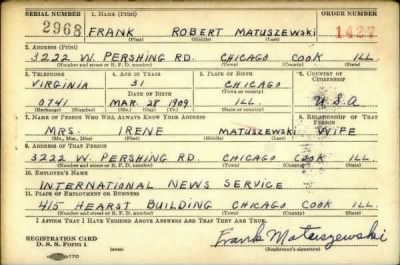 SERIAL NUMBER 1. Name (Print) ORDER NUMBER
2968 FRANK ROBERT MATUSZEWSKI 1427
(First) (Middle) (Last)
2. Address (Print)
3222 W. PERSHING RD. CHICAGO COOK ILL.
(Number and street or R. F. D. number) (Town) (County) (State)
3. Telephone 4. Age in Years 5. Place of Birth 6. Country of Citizenship
VIRGINIA 31 CHICAGO
Date of Birth (Town or county)
0741 MAR. 28 1909 ILL. U.S.A
(Exchange) (Number) (Mo.) (Day) (Yr.) (State or country)
7. Name of Person Who Will Always Know Your Address 8. Relationship of That Person
MRS. IRENE MATUSZEWSKI WIFE
(Mr., Mrs., Miss) (First) (Middle) (Last)
9. Address of That Person
3222 W. PERSHING RD. CHICAGO COOK ILL.
(Number and street or R. F. D. number) (Town) (County) (State)
10. Employer's Name
INTERNATIONAL NEWS SERVICE
11. Place of Employment or Business
415 HEARST BUILDING CHICAGO COOK ILL.
(Number and street or R. F. D. number) (Town) (County) (State)
I Affirm That I Have Verified Above Answers and That They Are True.
REGISTRATION CARD
D. S. S. Form 1 Frank Matuszewski
(Registrant's signature)